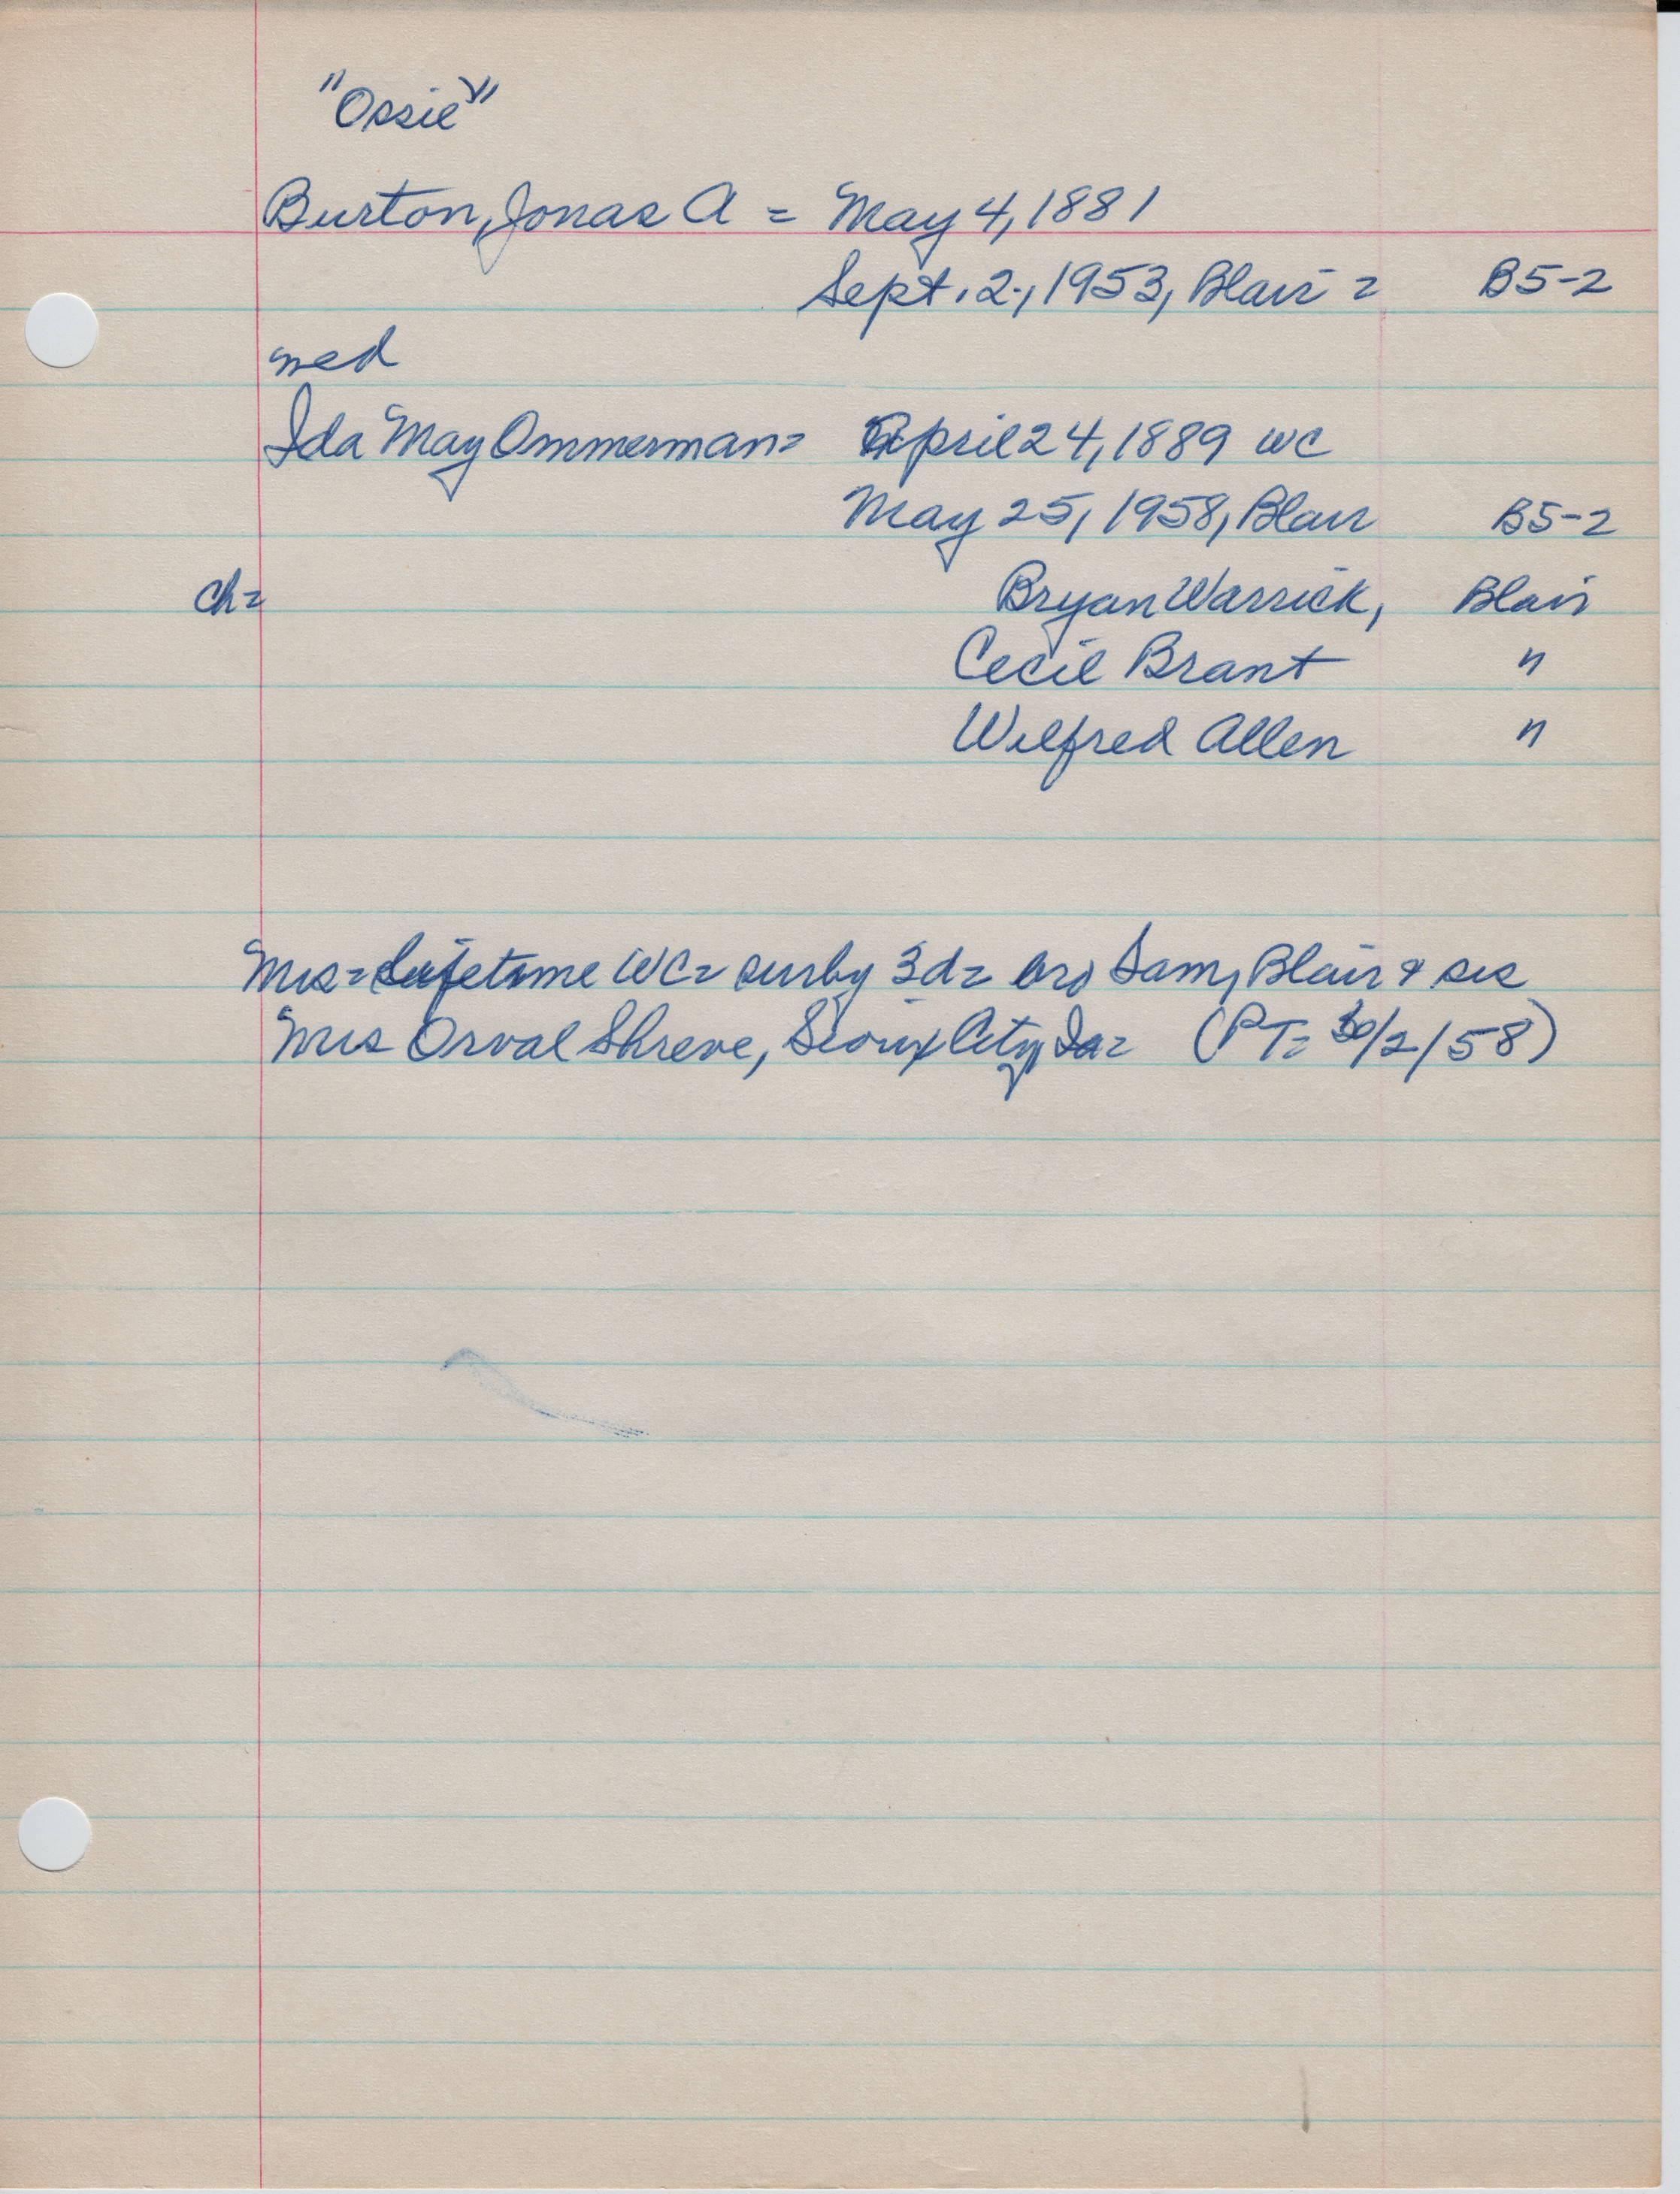 "Ossie"
Burton, Jonas A = May 4, 1881
Sept. 2, 1953, Blair = B5-2
med
Ida May Ommerman = April 24, 1889 WC
May 25, 1958, Blair B5-2
Ch =
Bryan Warrick, Blair
Cecil Brant "
Wilfred Allen "
Mrs = Lifetime WC = surby 3d = bro Sam, Blair & sis
Mrs Orval Shreve, Sioux City, Ia = (PT = /2/58)